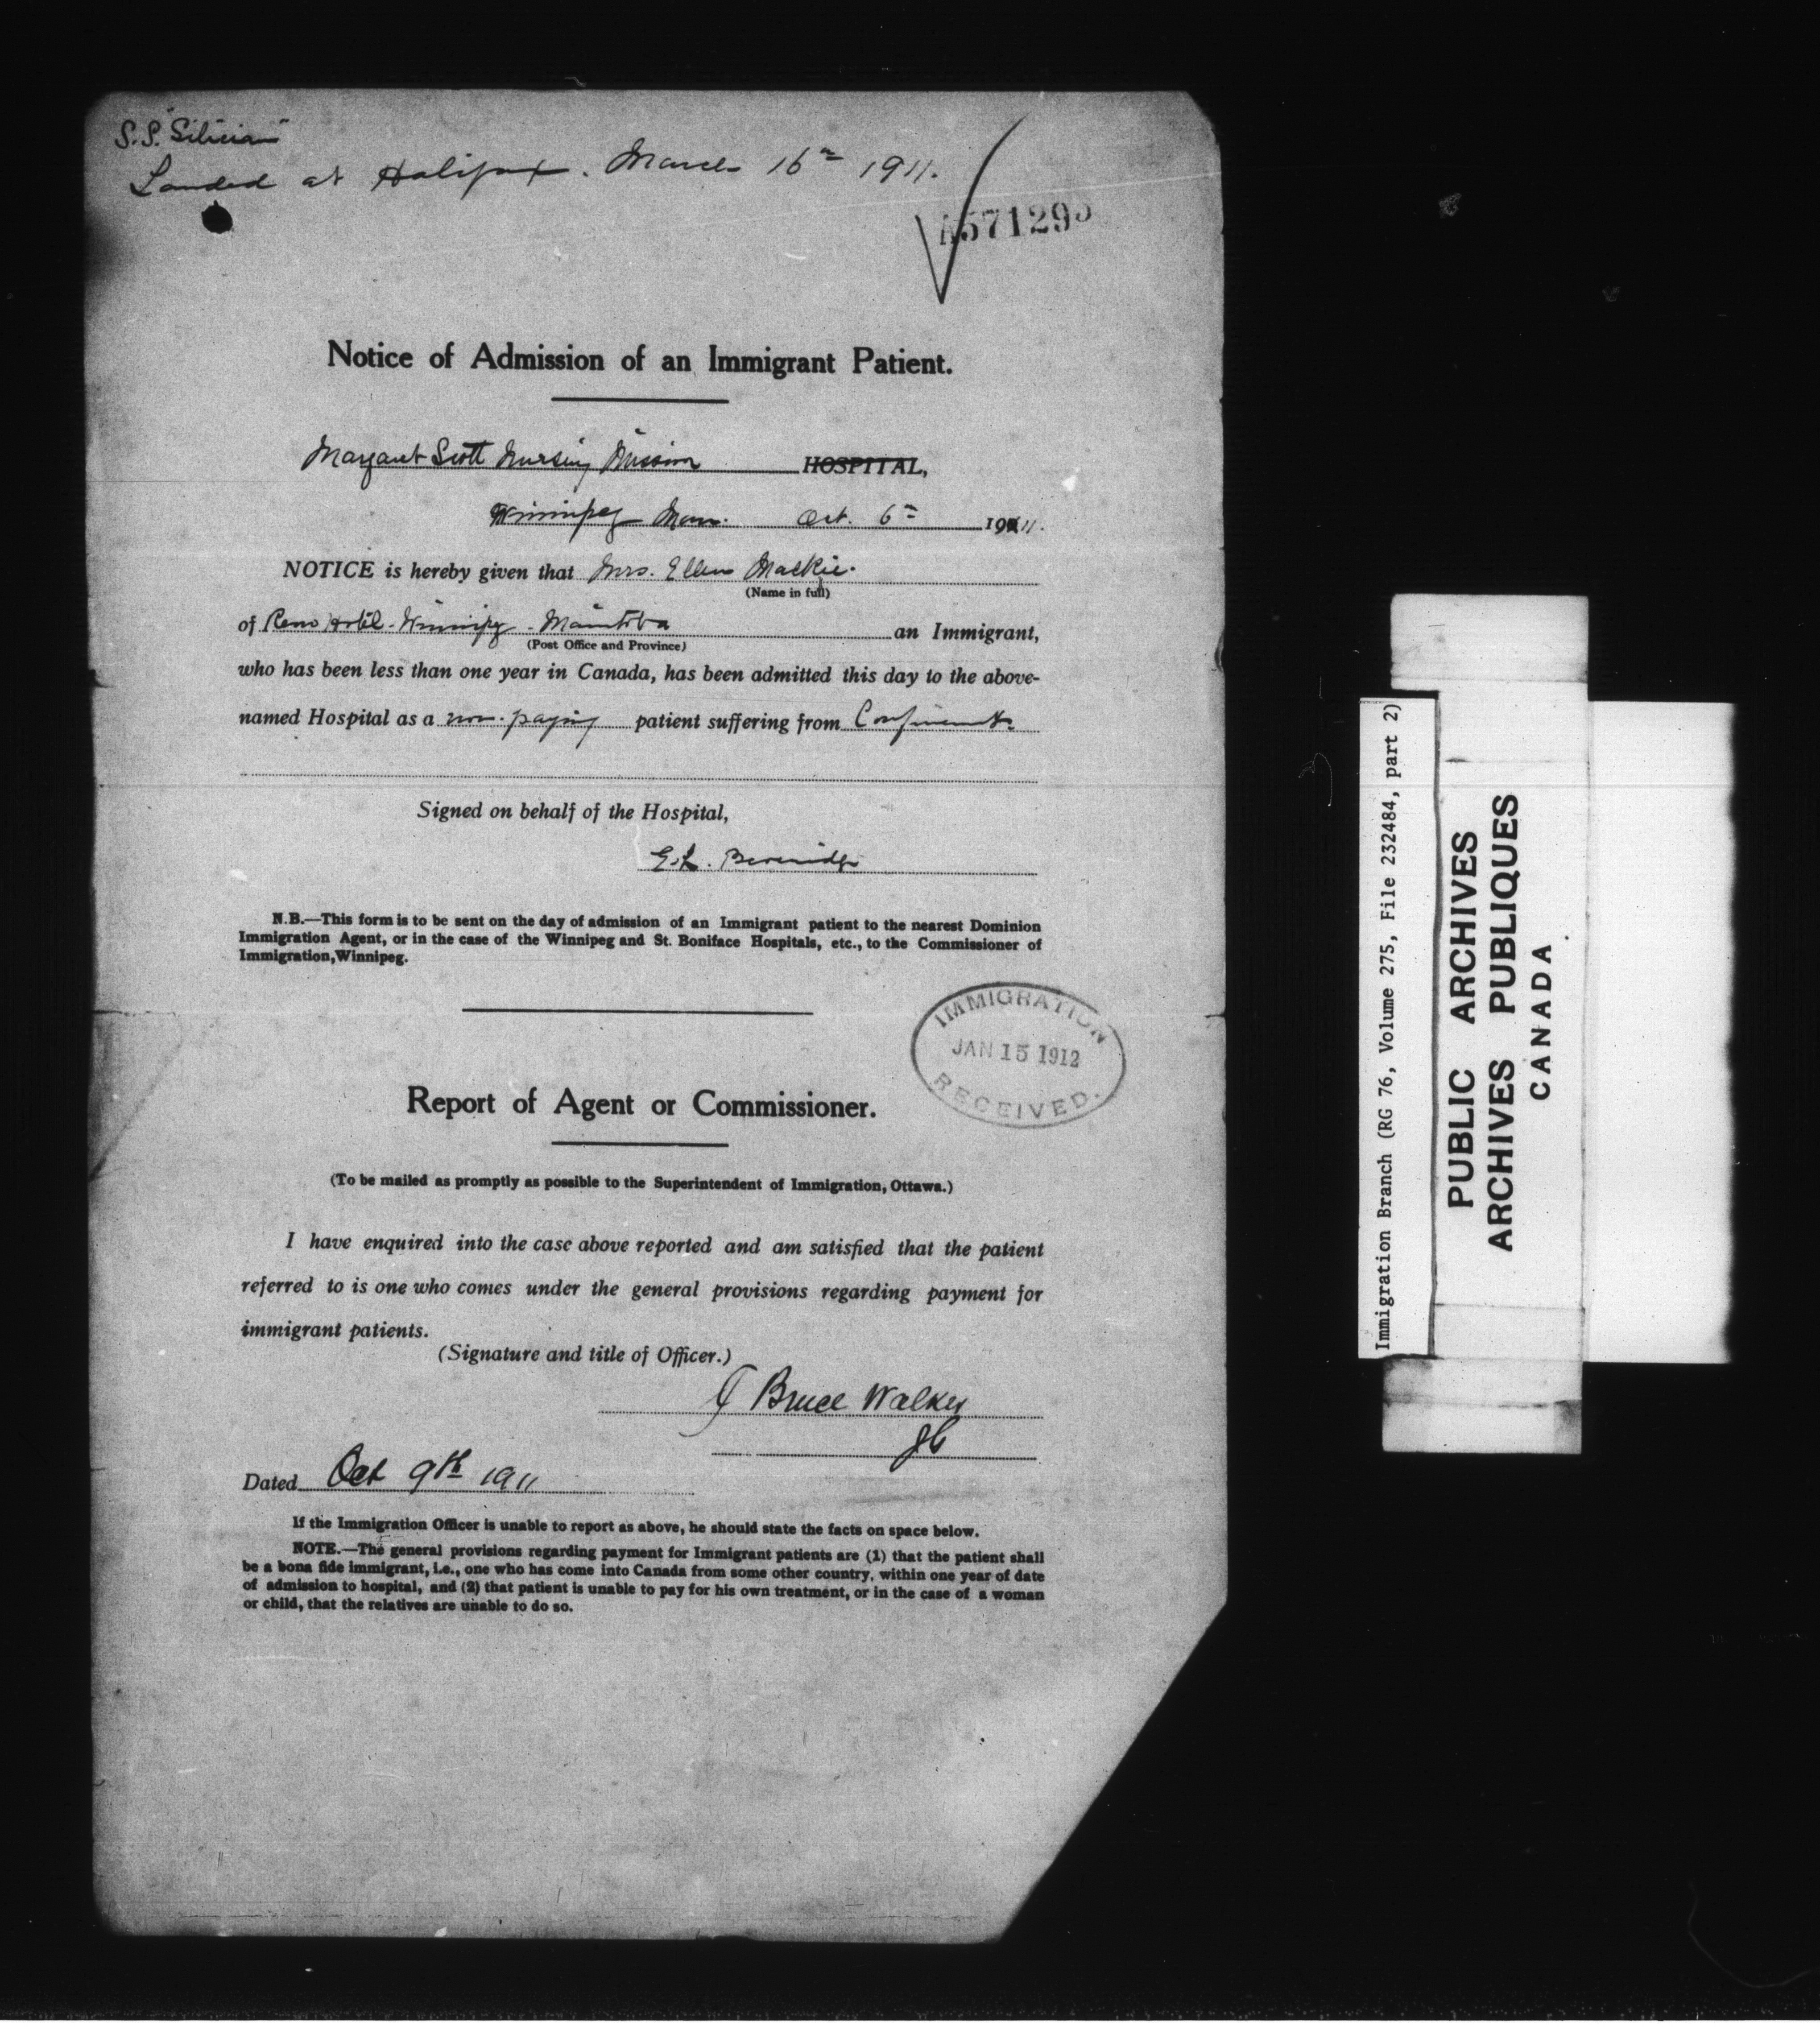 S.S. "Silician"
Landed at Halifax. March 16th 1911.
571293
Notice of Admission of an Immigrant Patient.
Margaret Scott Nursing Mission HOSPITAL,
Winnipeg Man. Oct. 6th 1911.
NOTICE is hereby given that Mrs. Ellen Mackie.
(Name in full)
of Reno Hotel. Winnipeg. Manitoba an Immigrant,
(Post Office and Province)
who has been less than one year in Canada, has been admitted this day to the above-
named Hospital as a non-paying patient suffering from Confinement.
Signed on behalf of the Hospital,
E.L. Beveridge
N.B.—This form is to be sent on the day of admission of an Immigrant patient to the nearest Dominion
Immigration Agent, or in the case of the Winnipeg and St. Boniface Hospitals, etc., to the Commissioner of
Immigration, Winnipeg.
IMMIGRATION
JAN 15 1912
RECEIVED.
Report of Agent or Commissioner.
(To be mailed as promptly as possible to the Superintendent of Immigration, Ottawa.)
I have enquired into the case above reported and am satisfied that the patient
referred to is one who comes under the general provisions regarding payment for
immigrant patients.
(Signature and title of Officer.)
J Bruce Walker
Dated Oct 9th 1911
If the Immigration Officer is unable to report as above, he should state the facts on space below.
NOTE.—The general provisions regarding payment for Immigrant patients are (1) that the patient shall
be a bona fide immigrant, i.e., one who has come into Canada from some other country, within one year of date
of admission to hospital, and (2) that patient is unable to pay for his own treatment, or in the case of a woman
or child, that the relatives are unable to do so.
Immigration Branch (RG 76, Volume 275, File 232484, part 2)
PUBLIC ARCHIVES
ARCHIVES PUBLIQUES
CANADA